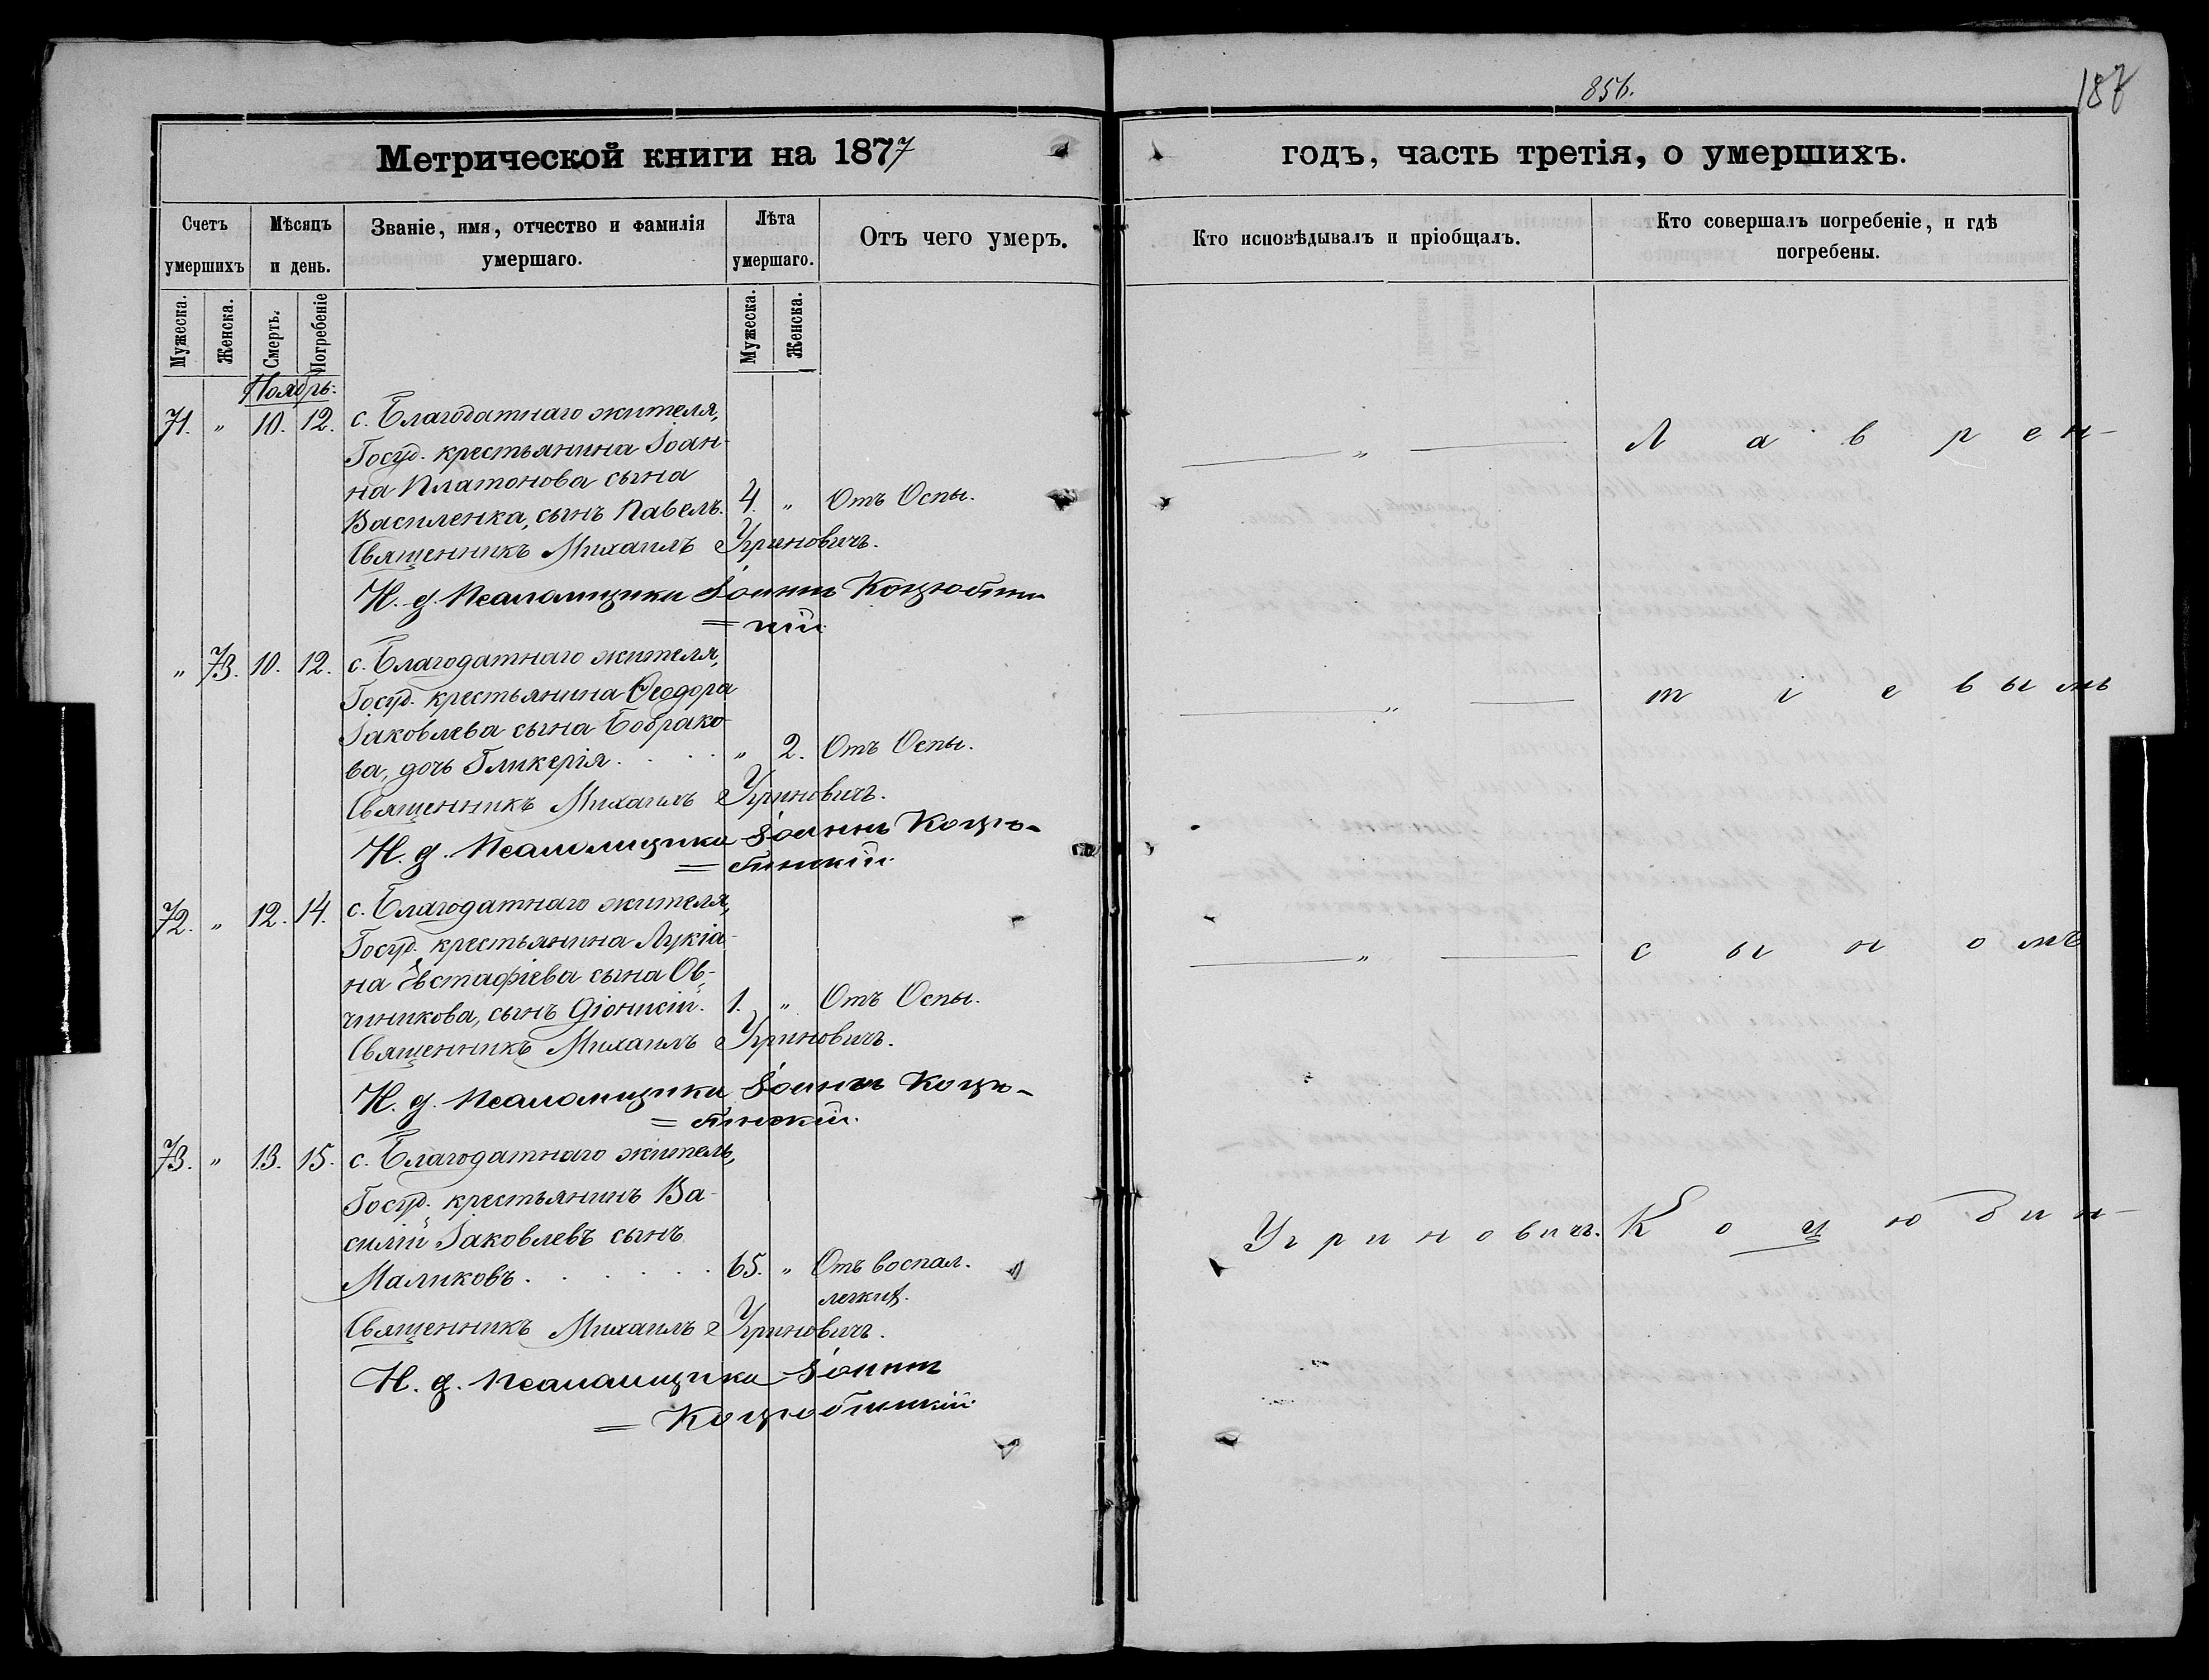 856.
187
Метрической книги на 1877
годъ, часть третія, о умершихъ.
Счетъ умершихъ
Мѣсяцъ и день.
Званіе, имя, отчество и фамилія умершаго.
Лѣта умершаго.
Отъ чего умеръ.
Кто исповѣдывалъ и пріобщалъ.
Кто совершалъ погребеніе, и гдѣ погребены.
Мужеска.
Женска.
Смерть.
Погребеніе
Мужеска.
Женска.
Ноябрь.
71. " 10. 12. с. Благодатнаго жителя,
Госуд. крестьянина Іоан-
на Платонова сына
Василенка, сынъ Павелъ. 4. " Отъ Оспы.
Священникъ Михаилъ Угриновичъ.
И. д. Псаломщика Іоаннъ Коцюбин-
=скій.
— " — Л а в р е н-
" 73. 10. 12. с. Благодатнаго жителя,
Госуд. крестьянина Ѳеодора
Іаковлева сына Бобрако-
ва, дочь Гликерія . . . . " 2. Отъ Оспы.
Священникъ Михаилъ Угриновичъ.
И. д. Псаломщика Іоаннъ Коцю-
=бинскій.
— " — т і е в ы м ъ
72. " 12. 14. с. Благодатнаго жителя,
Госуд. крестьянина Лукіа-
на Евстафіева сына Ов-
чиникова, сынъ Діонисій. 1. " Отъ Оспы.
Священникъ Михаилъ Угриновичъ.
И. д. Псаломщика Іоаннъ Коцю-
=бинскій.
— " — с ы н о мъ
73. " 13. 15. с. Благодатнаго житель,
Госуд. крестьянинъ Ва-
силій Іаковлевъ сынъ
Маликовъ . . . . . . 65. " Отъ воспал.
легких.
Священникъ Михаилъ Угриновичъ.
И. д. Псаломщика Іоаннъ
=Коцюбинскій.
У г р и н о в и ч ъ. К о ц ю б и н-